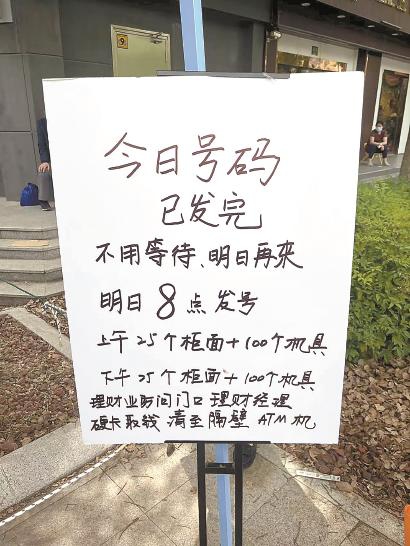 今日号码
已发完
不用等待、明日再来
明日8点发号
上午25个柜面+100个机具
下午25个柜面+100个机具
理财业务问门口理财经理
硬卡取钱请至隔壁ATM机
9